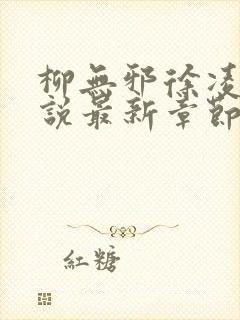 柳無邪徐凌
說最新章節
紅糖